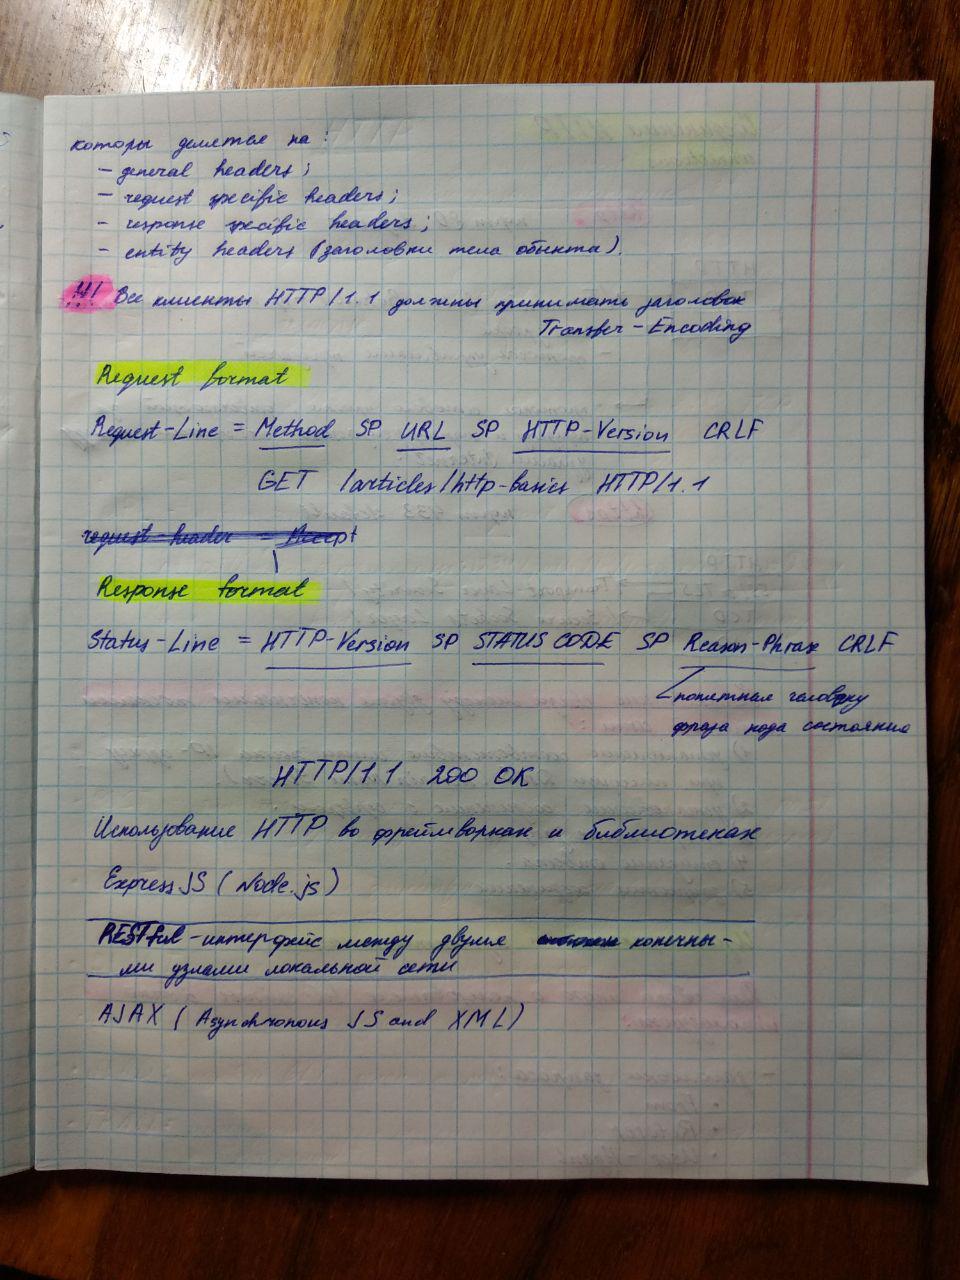 которы делятся на:
- general headers;
- request specific headers;
- response specific headers;
- entity headers (заголовки тела объекта).
!!! Все клиенты HTTP/1.1 должны принимать заголовок
Transfer-Encoding
Request format
Request-Line = Method SP URL SP HTTP-Version CRLF
GET /articles/http-basics HTTP/1.1
request-header = Accept
Response format
Status-Line = HTTP-Version SP STATUS CODE SP Reason-Phrase CRLF
понятная человеку
фраза кода состояния
HTTP/1.1 200 OK
Использование HTTP во фреймворках и библиотеках
ExpressJS (Node.js)
RESTful-интерфейс между двумя конечны-
ми узлами локальной сети
AJAX (Asynchronous JS and XML)